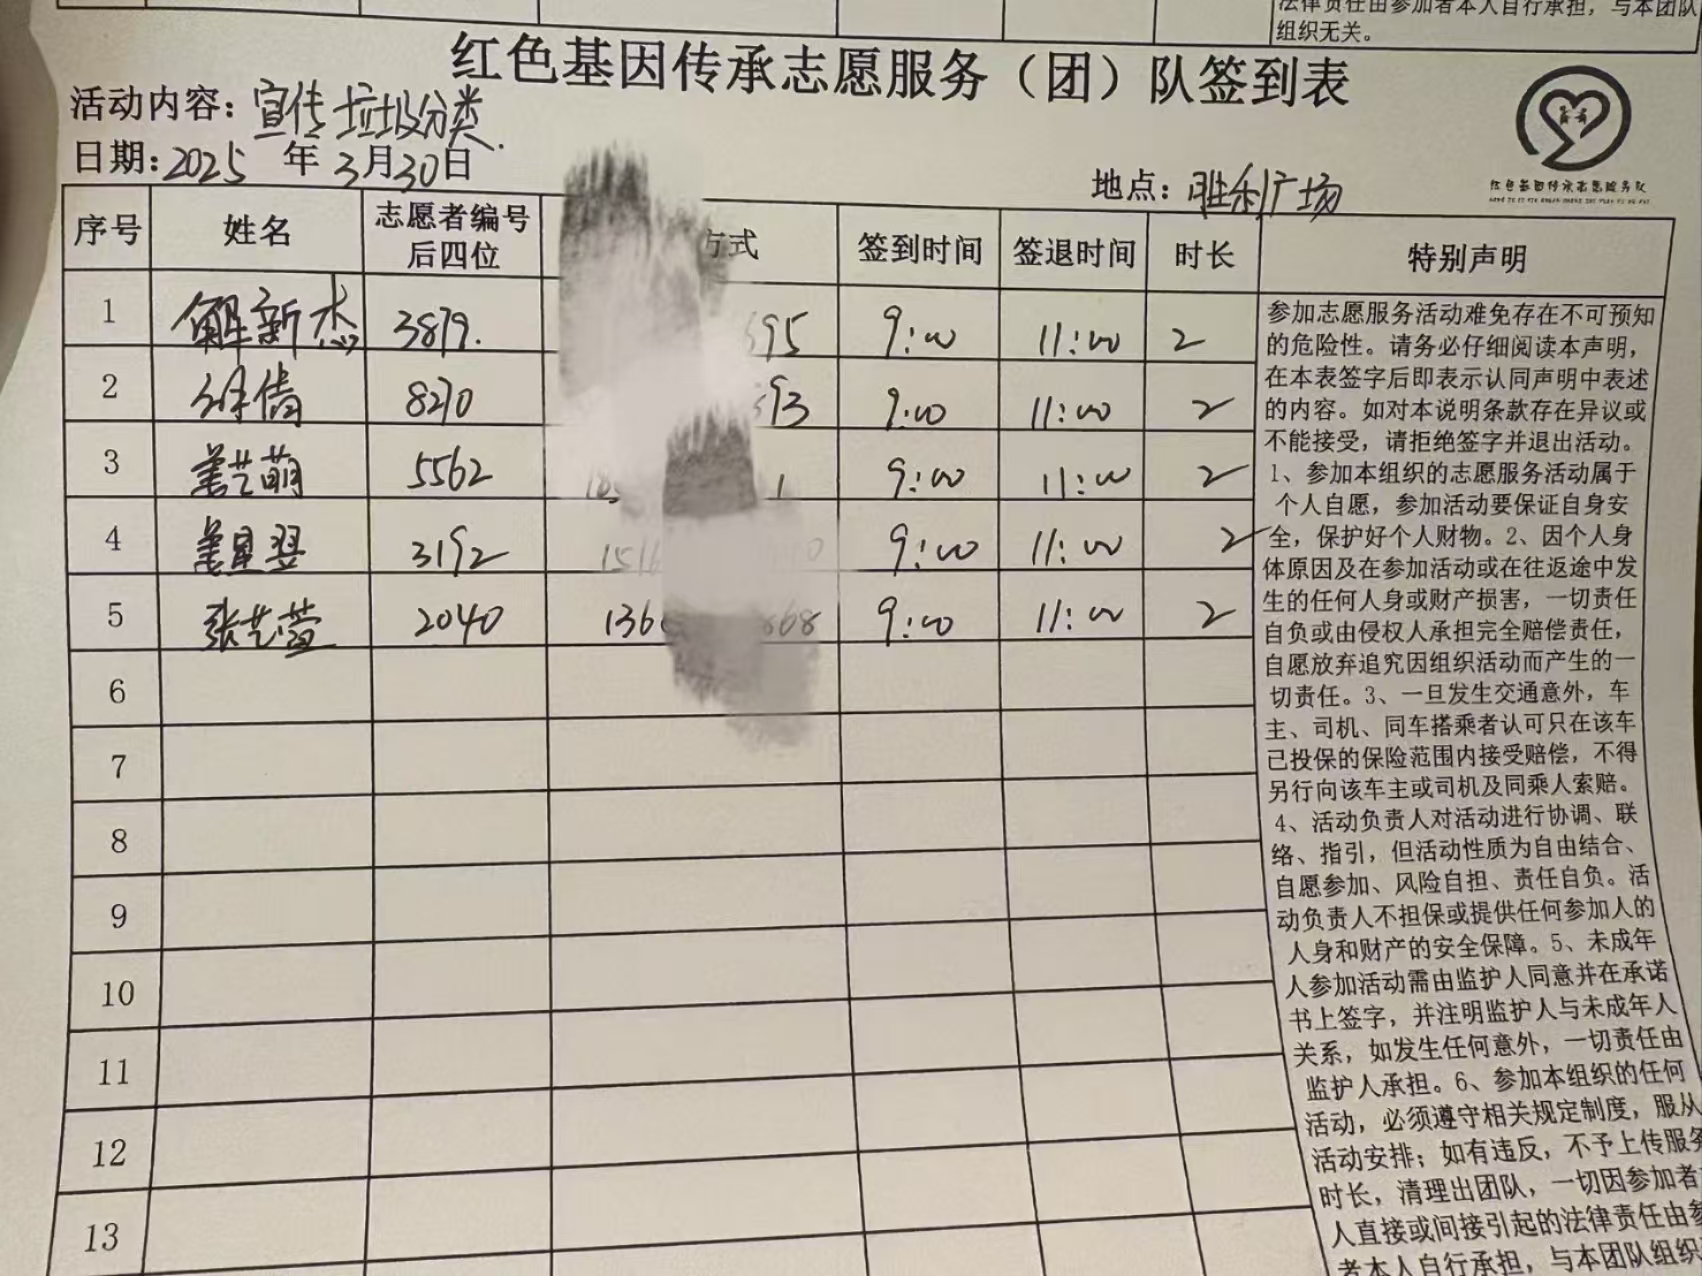 法律责任由参加者本人自行承担，与本团队
组织无关。
红色基因传承志愿服务（团）队签到表
活动内容：宣传垃圾分类.
日期：2025 年 3月30日
地点：胜利广场
红色基因传承志愿服务队
序号 姓名 志愿者编号后四位 方式 签到时间 签退时间 时长 特别声明
1 解新杰 3879. 395 9:00 11:00 2
2 徐倩 8270 593 9:00 11:00 2
3 姜艺萌 5562 1 9:00 11:00 2
4 姜星翌 3192 151 0 9:00 11:00 2
5 张艺萱 2040 136 668 9:00 11:00 2
6
7
8
9
10
11
12
13
参加志愿服务活动难免存在不可预知
的危险性。请务必仔细阅读本声明，
在本表签字后即表示认同声明中表述
的内容。如对本说明条款存在异议或
不能接受，请拒绝签字并退出活动。
1、参加本组织的志愿服务活动属于
个人自愿，参加活动要保证自身安
全，保护好个人财物。2、因个人身
体原因及在参加活动或在往返途中发
生的任何人身或财产损害，一切责任
自负或由侵权人承担完全赔偿责任，
自愿放弃追究因组织活动而产生的一
切责任。3、一旦发生交通意外，车
主、司机、同车搭乘者认可只在该车
已投保的保险范围内接受赔偿，不得
另行向该车主或司机及同乘人索赔。
4、活动负责人对活动进行协调、联
络、指引，但活动性质为自由结合、
自愿参加、风险自担、责任自负。活
动负责人不担保或提供任何参加人的
人身和财产的安全保障。5、未成年
人参加活动需由监护人同意并在承诺
书上签字，并注明监护人与未成年人
关系，如发生任何意外，一切责任由
监护人承担。6、参加本组织的任何
活动，必须遵守相关规定制度，服从
活动安排；如有违反，不予上传服务
时长，清理出团队，一切因参加者
人直接或间接引起的法律责任由参
者本人自行承担，与本团队组织